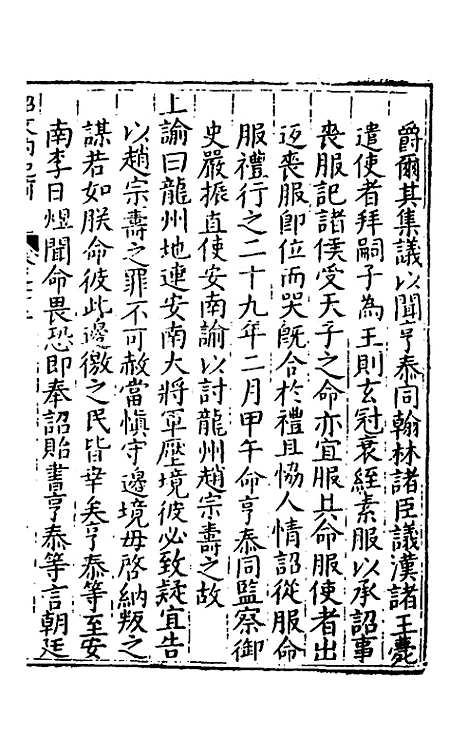 爵爾其集議以聞亨泰同翰林諸臣議漢諸王薨
遣使者拜嗣子為王則玄冠衰絰素服以承詔事
喪服記諸侯受天子之命亦宜服其命服使者出
返喪服即位而哭旣合於禮且恊人情詔從服命
服禮行之二十九年二月甲午命亨泰同監察御
史嚴振直使安南諭以討龍州趙宗壽之故
上諭曰龍州地連安南大將軍壓境彼必致疑宜告
以趙宗壽之罪不可赦當慎守邊境毋啓納叛之
謀若如朕命彼此邊徼之民皆幸矣亨泰等至安
南李日焜聞命畏恐即奉詔貽書亨泰等言朝廷